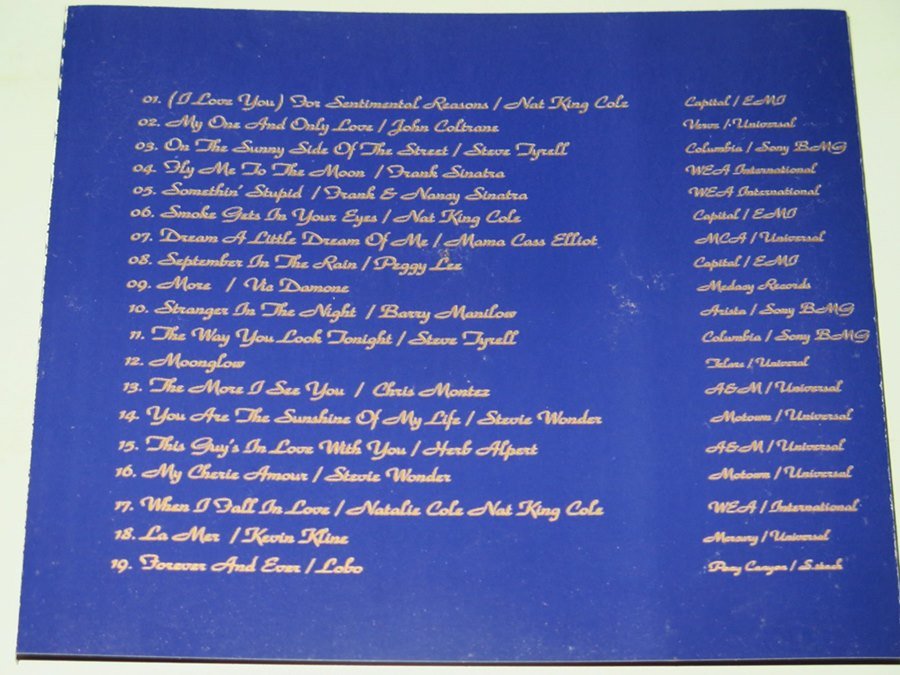 01. (I Love You) For Sentimental Reasons / Nat King Cole Capital / EMI
02. My One And Only Love / John Coltrane Verve / Universal
03. On The Sunny Side Of The Street / Steve Tyrell Columbia / Sony BMG
04. Fly Me To The Moon / Frank Sinatra WEA International
05. Somethin' Stupid / Frank & Nancy Sinatra WEA International
06. Smoke Gets In Your Eyes / Nat King Cole Capital / EMI
07. Dream A Little Dream Of Me / Mama Cass Elliot MCA / Universal
08. September In The Rain / Peggy Lee Capital / EMI
09. More / Vic Damone Medacy Records
10. Stranger In The Night / Barry Manilow Arista / Sony BMG
11. The Way You Look Tonight / Steve Tyrell Columbia / Sony BMG
12. Moonglow / Universal
13. The More I See You / Chris Montez A&M / Universal
14. You Are The Sunshine Of My Life / Stevie Wonder Motown / Universal
15. This Guy's In Love With You / Herb Alpert A&M / Universal
16. My Cherie Amour / Stevie Wonder Motown / Universal
17. When I Fall In Love / Natalie Cole Nat King Cole WEA / International
18. La Mer / Kevin Kline Mercury / Universal
19. Forever And Ever / Lobo Pony Canyon /